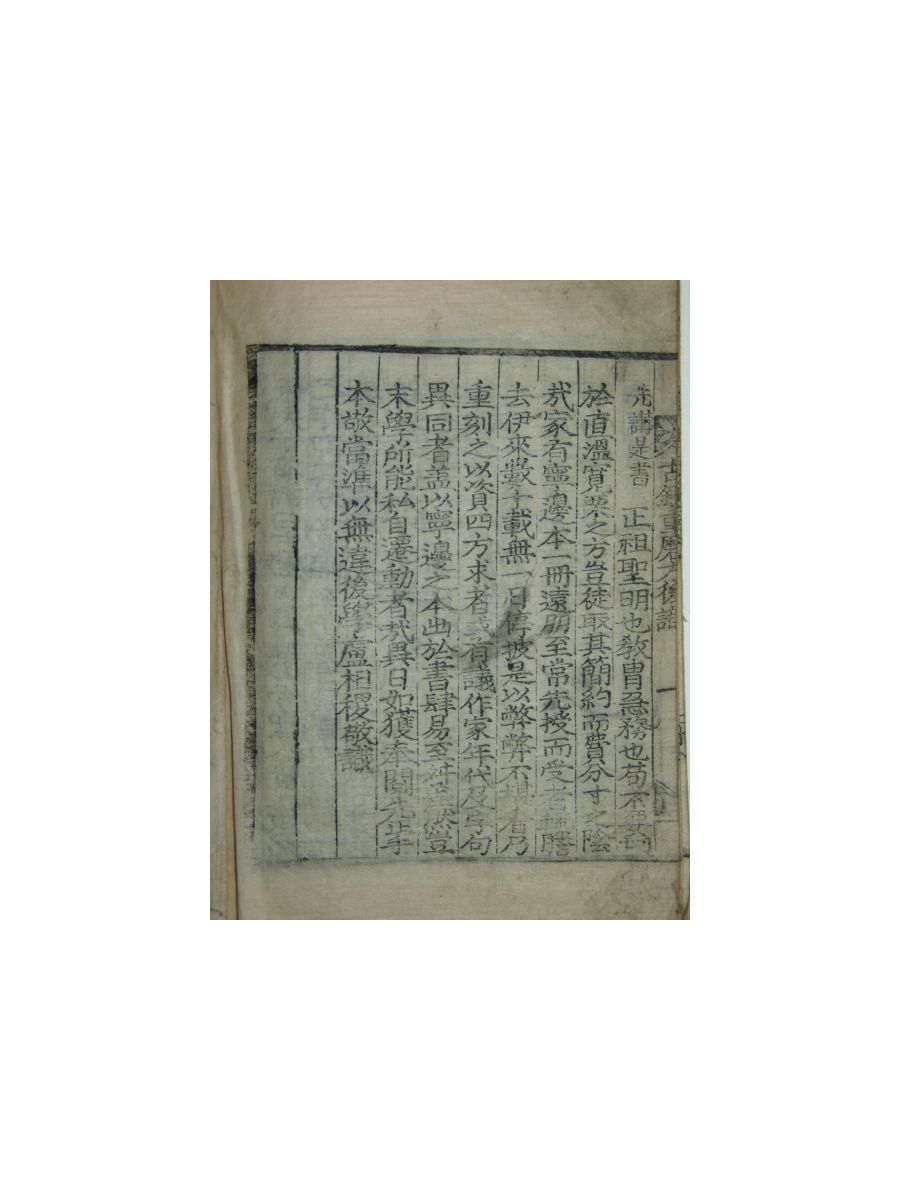 古鏡重磨方後語
先講是書 正祖聖明也敎冑急務也苟不
於直溫寬栗之方豈徒取其簡約而費分寸之陰
哉家有寧邊本一冊遠朋至常先授而受者謄
去伊來數十載無一日停披是以弊弊不堪看乃
重刻之以資四方求者義有議作家年代及字句
異同者盖以寧邊之本出於書肆易至然豈
末學所能私自遷動者哉異日如獲本閣先正手
本敬當準以無違後學盧相稷敬識